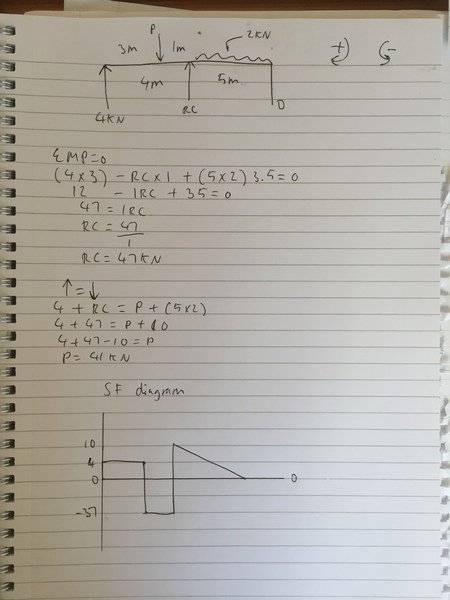 P
2KN
3m 1m
+) (-
4m 5m
4KN RC D
ΣMP=0
(4×3) - RC×1 + (5×2) 3.5=0
12 - 1RC + 35=0
47 = 1RC
RC = 47
1
RC = 47KN
↑=↓
4 + RC = P + (5×2)
4 + 47 = P + 10
4+47-10 = P
P= 41KN
SF diagram
10
4
0 0
-37